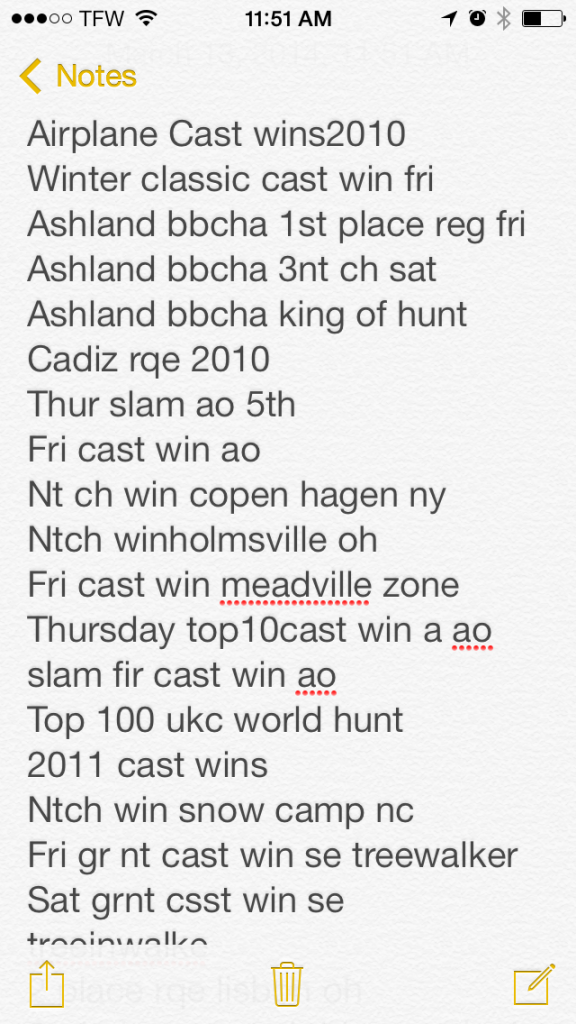 TFW 11:51 AM
Notes
Airplane Cast wins2010
Winter classic cast win fri
Ashland bbcha 1st place reg fri
Ashland bbcha 3nt ch sat
Ashland bbcha king of hunt
Cadiz rqe 2010
Thur slam ao 5th
Fri cast win ao
Nt ch win copen hagen ny
Ntch winholmsville oh
Fri cast win meadville zone
Thursday top10cast win a ao
slam fir cast win ao
Top 100 ukc world hunt
2011 cast wins
Ntch win snow camp nc
Fri gr nt cast win se treewalker
Sat grnt csst win se